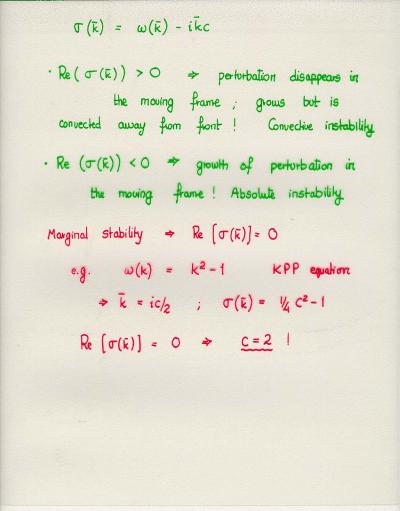 σ(k̄) = ω(k̄) - ik̄c
· Re(σ(k̄)) > 0 ⇒ perturbation disappears in
the moving frame ; grows but is
convected away from front ! Convective instability
· Re (σ(k̄)) < 0 ⇒ growth of perturbation in
the moving frame ! Absolute instability
Marginal stability ⇒ Re [σ(k̄)] = 0
e.g. ω(k) = k² - 1 KPP equation
⇒ k̄ = ic/2 ; σ(k̄) = ¼ c² - 1
Re [σ(k̄)] = 0 ⇒ c = 2 !